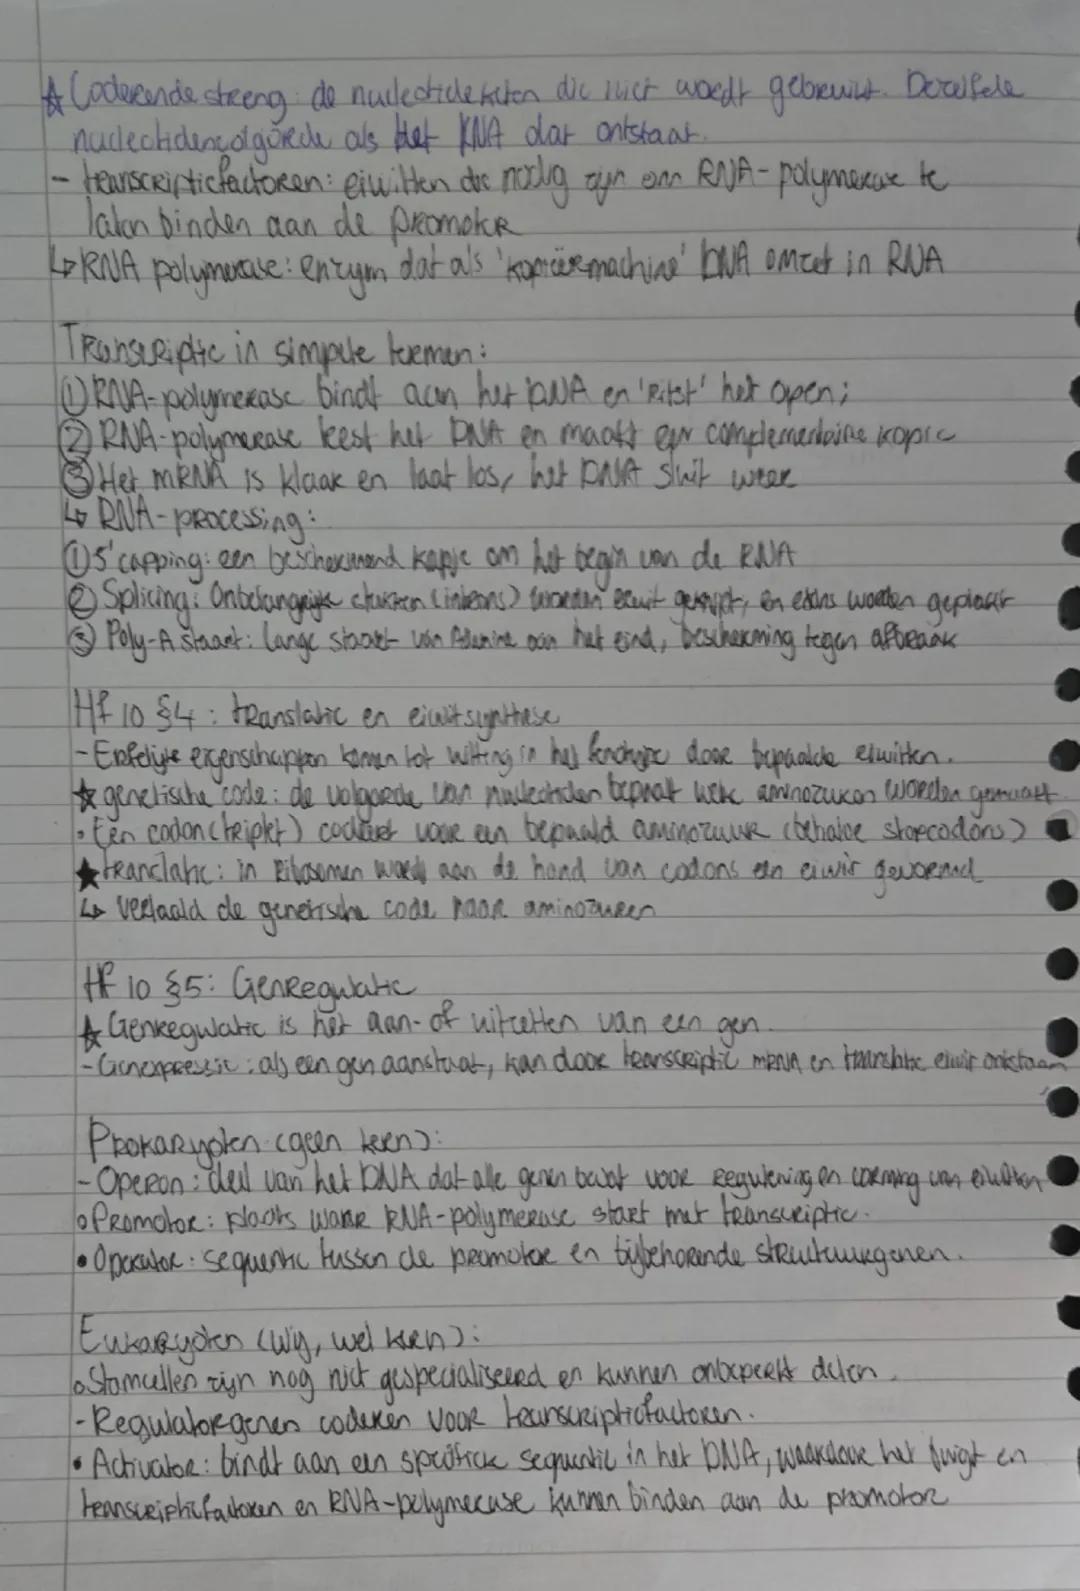 ☆ Coderende streng: de nucleotideketen die niet wordt gebruikt. Dezelfde
nucleotidenvolgorde als het RNA dat ontstaat.
- transcriptiefactoren: eiwitten die nodig zijn om RNA-polymerase te
laten binden aan de promotor
↳ RNA polymerase: enzym dat als 'kopieermachine' DNA omzet in RNA
Transcriptie in simpele termen:
① RNA-polymerase bindt aan het DNA en 'ritst' het open;
② RNA-polymerase leest het DNA en maakt een complementaire kopie
③ Het mRNA is klaar en laat los, het DNA sluit weer
↳ RNA-processing:
① 5'capping: een beschermend kapje om het begin van de RNA
② Splicing: Onbelangrijke stukken (introns) worden eruit geknipt, en exons worden geplakt
③ Poly-A staart: lange staart van Adenine aan het eind, bescherming tegen afbraak
Hf 10 §4: translatie en eiwitsynthese
- Erfelijke eigenschappen komen tot uiting in het fenotype door bepaalde eiwitten.
☆ genetische code: de volgorde van nucleotiden bepaalt welk aminozuren worden gemaakt
• Een codon (triplet) codeert voor een bepaald aminozuur (behalve stopcodons)
★ translatie: in Ribosomen wordt aan de hand van codons een eiwit gevormd
↳ vertaald de genetische code naar aminozuren
Hf 10 §5: Genregulatie
☆ Genregulatie is het aan- of uitzetten van een gen.
- Genexpressie: als een gen aanstaat, kan door transcriptie mRNA en translatie eiwit ontstaan
Prokaryoten (geen kern):
- Operon: deel van het DNA dat alle genen bevat voor regulering en vorming van eiwitten
• Promotor: plaats waar RNA-polymerase start met transcriptie.
• Operator: sequentie tussen de promotor en bijbehorende structuurgenen.
Eukaryoten (wij, wel kern):
• Stamcellen zijn nog niet gespecialiseerd en kunnen onbeperkt delen.
- Regulatorgenen coderen voor transcriptiefactoren.
• Activator: bindt aan een specifieke sequentie in het DNA, waardoor het buigt en
transcriptiefactoren en RNA-polymerase kunnen binden aan de promotor